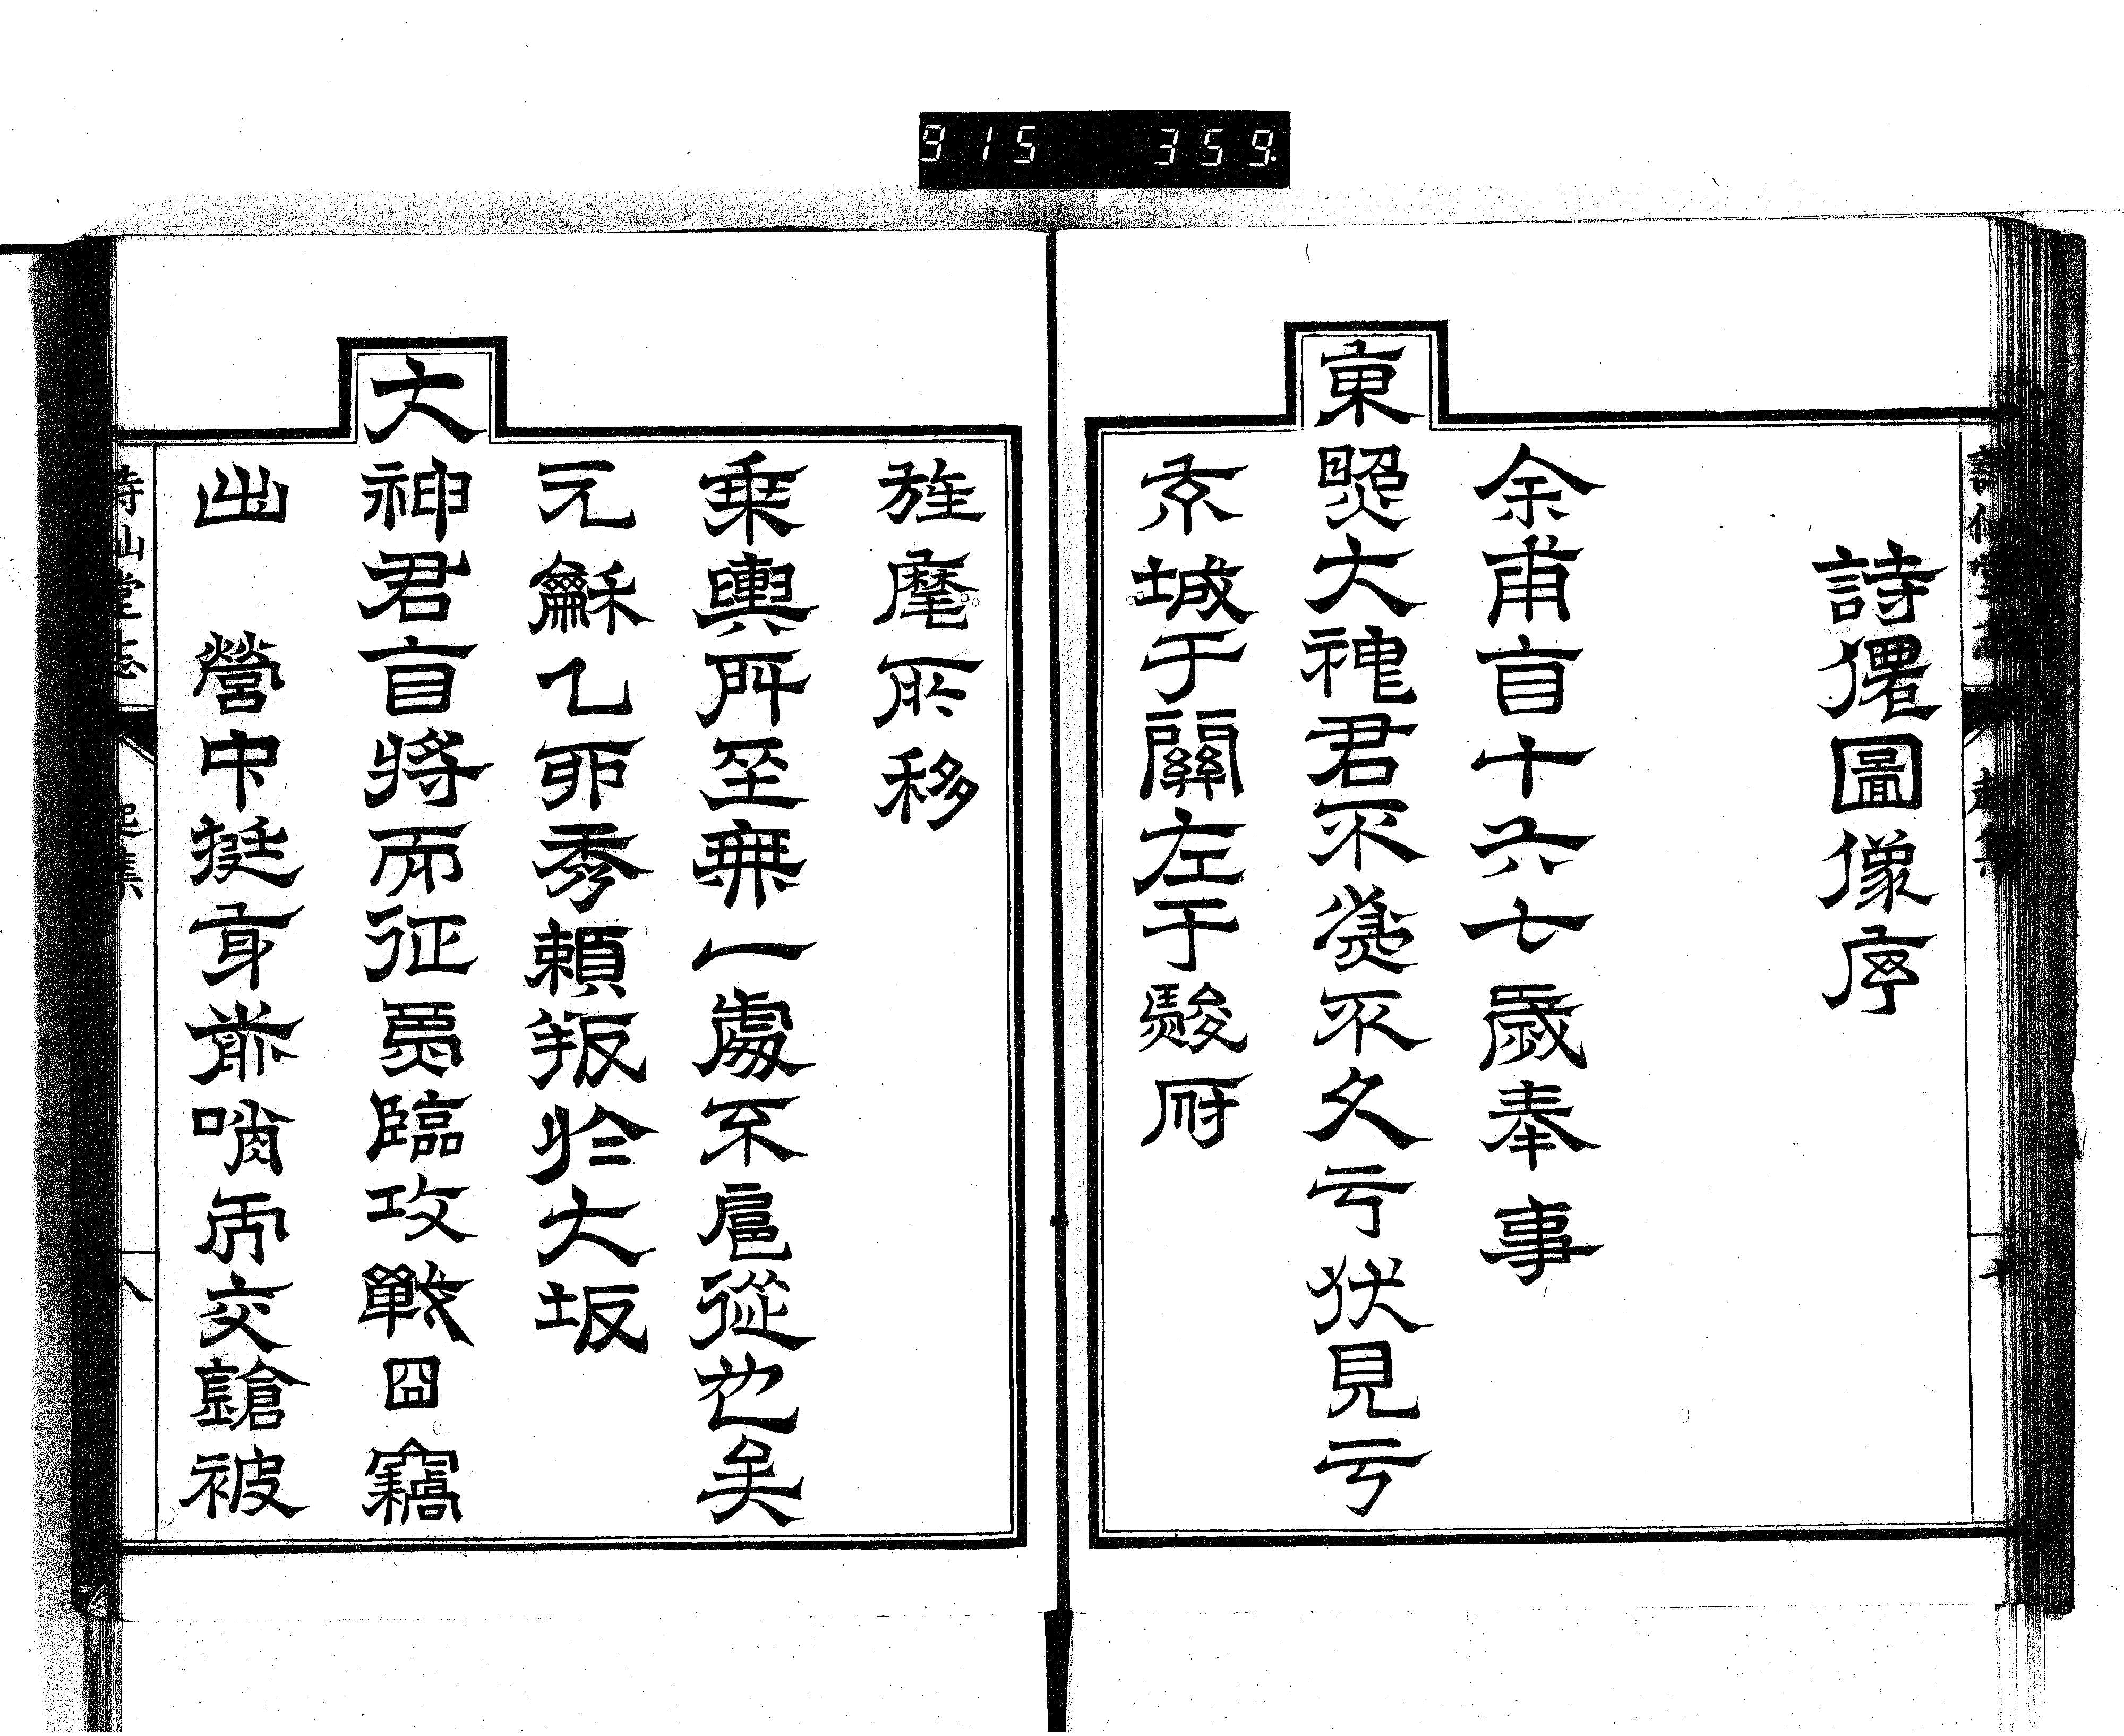 915 359.
詩僊圖像序
余甫𥄂十六七歲奉事
東照大神君不獎不久亏伏見亏
京城于關左于駿府
旌麾所移
乗輿所至無一處不扈從也矣
元龢乙卯秀賴叛於大坂
大神君𥄂將而征焉臨攻戰囧竊
出 營中挺身前哨兵交鎗被
詩仙堂志
起集
八